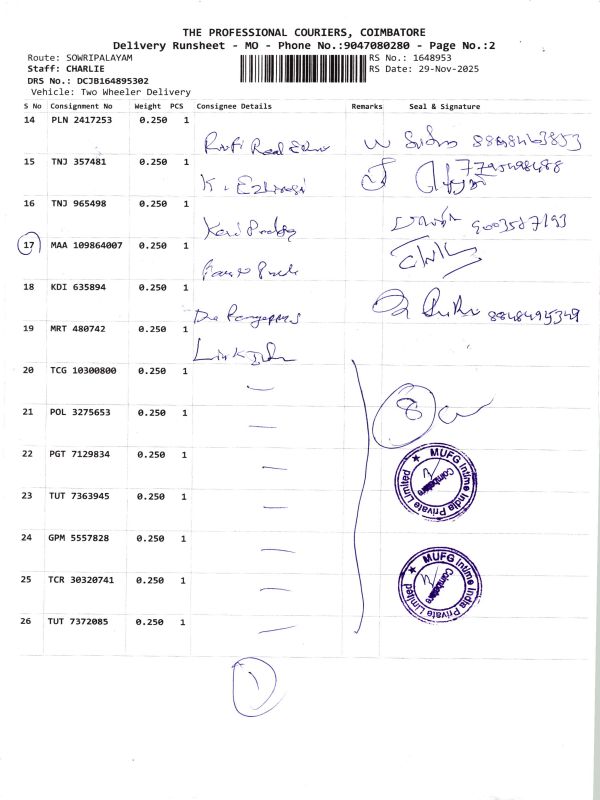 THE PROFESSIONAL COURIERS, COIMBATORE
Delivery Runsheet - MO - Phone No.:9047080280 - Page No.:2
Route: SOWRIPALAYAM
RS No.: 1648953
Staff: CHARLIE
RS Date: 29-Nov-2025
DRS No.: DCJB164895302
Vehicle: Two Wheeler Delivery
S No Consignment No Weight PCS Consignee Details Remarks Seal & Signature
14 PLN 2417253 0.250 1
15 TNJ 357481 0.250 1
K.
16 TNJ 965498 0.250 1
17 MAA 109864007 0.250 1
18 KDI 635894 0.250 1
8848495349
19 MRT 480742 0.250 1
Link
20 TCG 10300800 0.250 1
8
21 POL 3275653 0.250 1
22 PGT 7129834 0.250 1
MUFG Intime India Private Limited
Coimbatore
23 TUT 7363945 0.250 1
24 GPM 5557828 0.250 1
MUFG Intime India Private Limited
Coimbatore
25 TCR 30320741 0.250 1
26 TUT 7372085 0.250 1
1